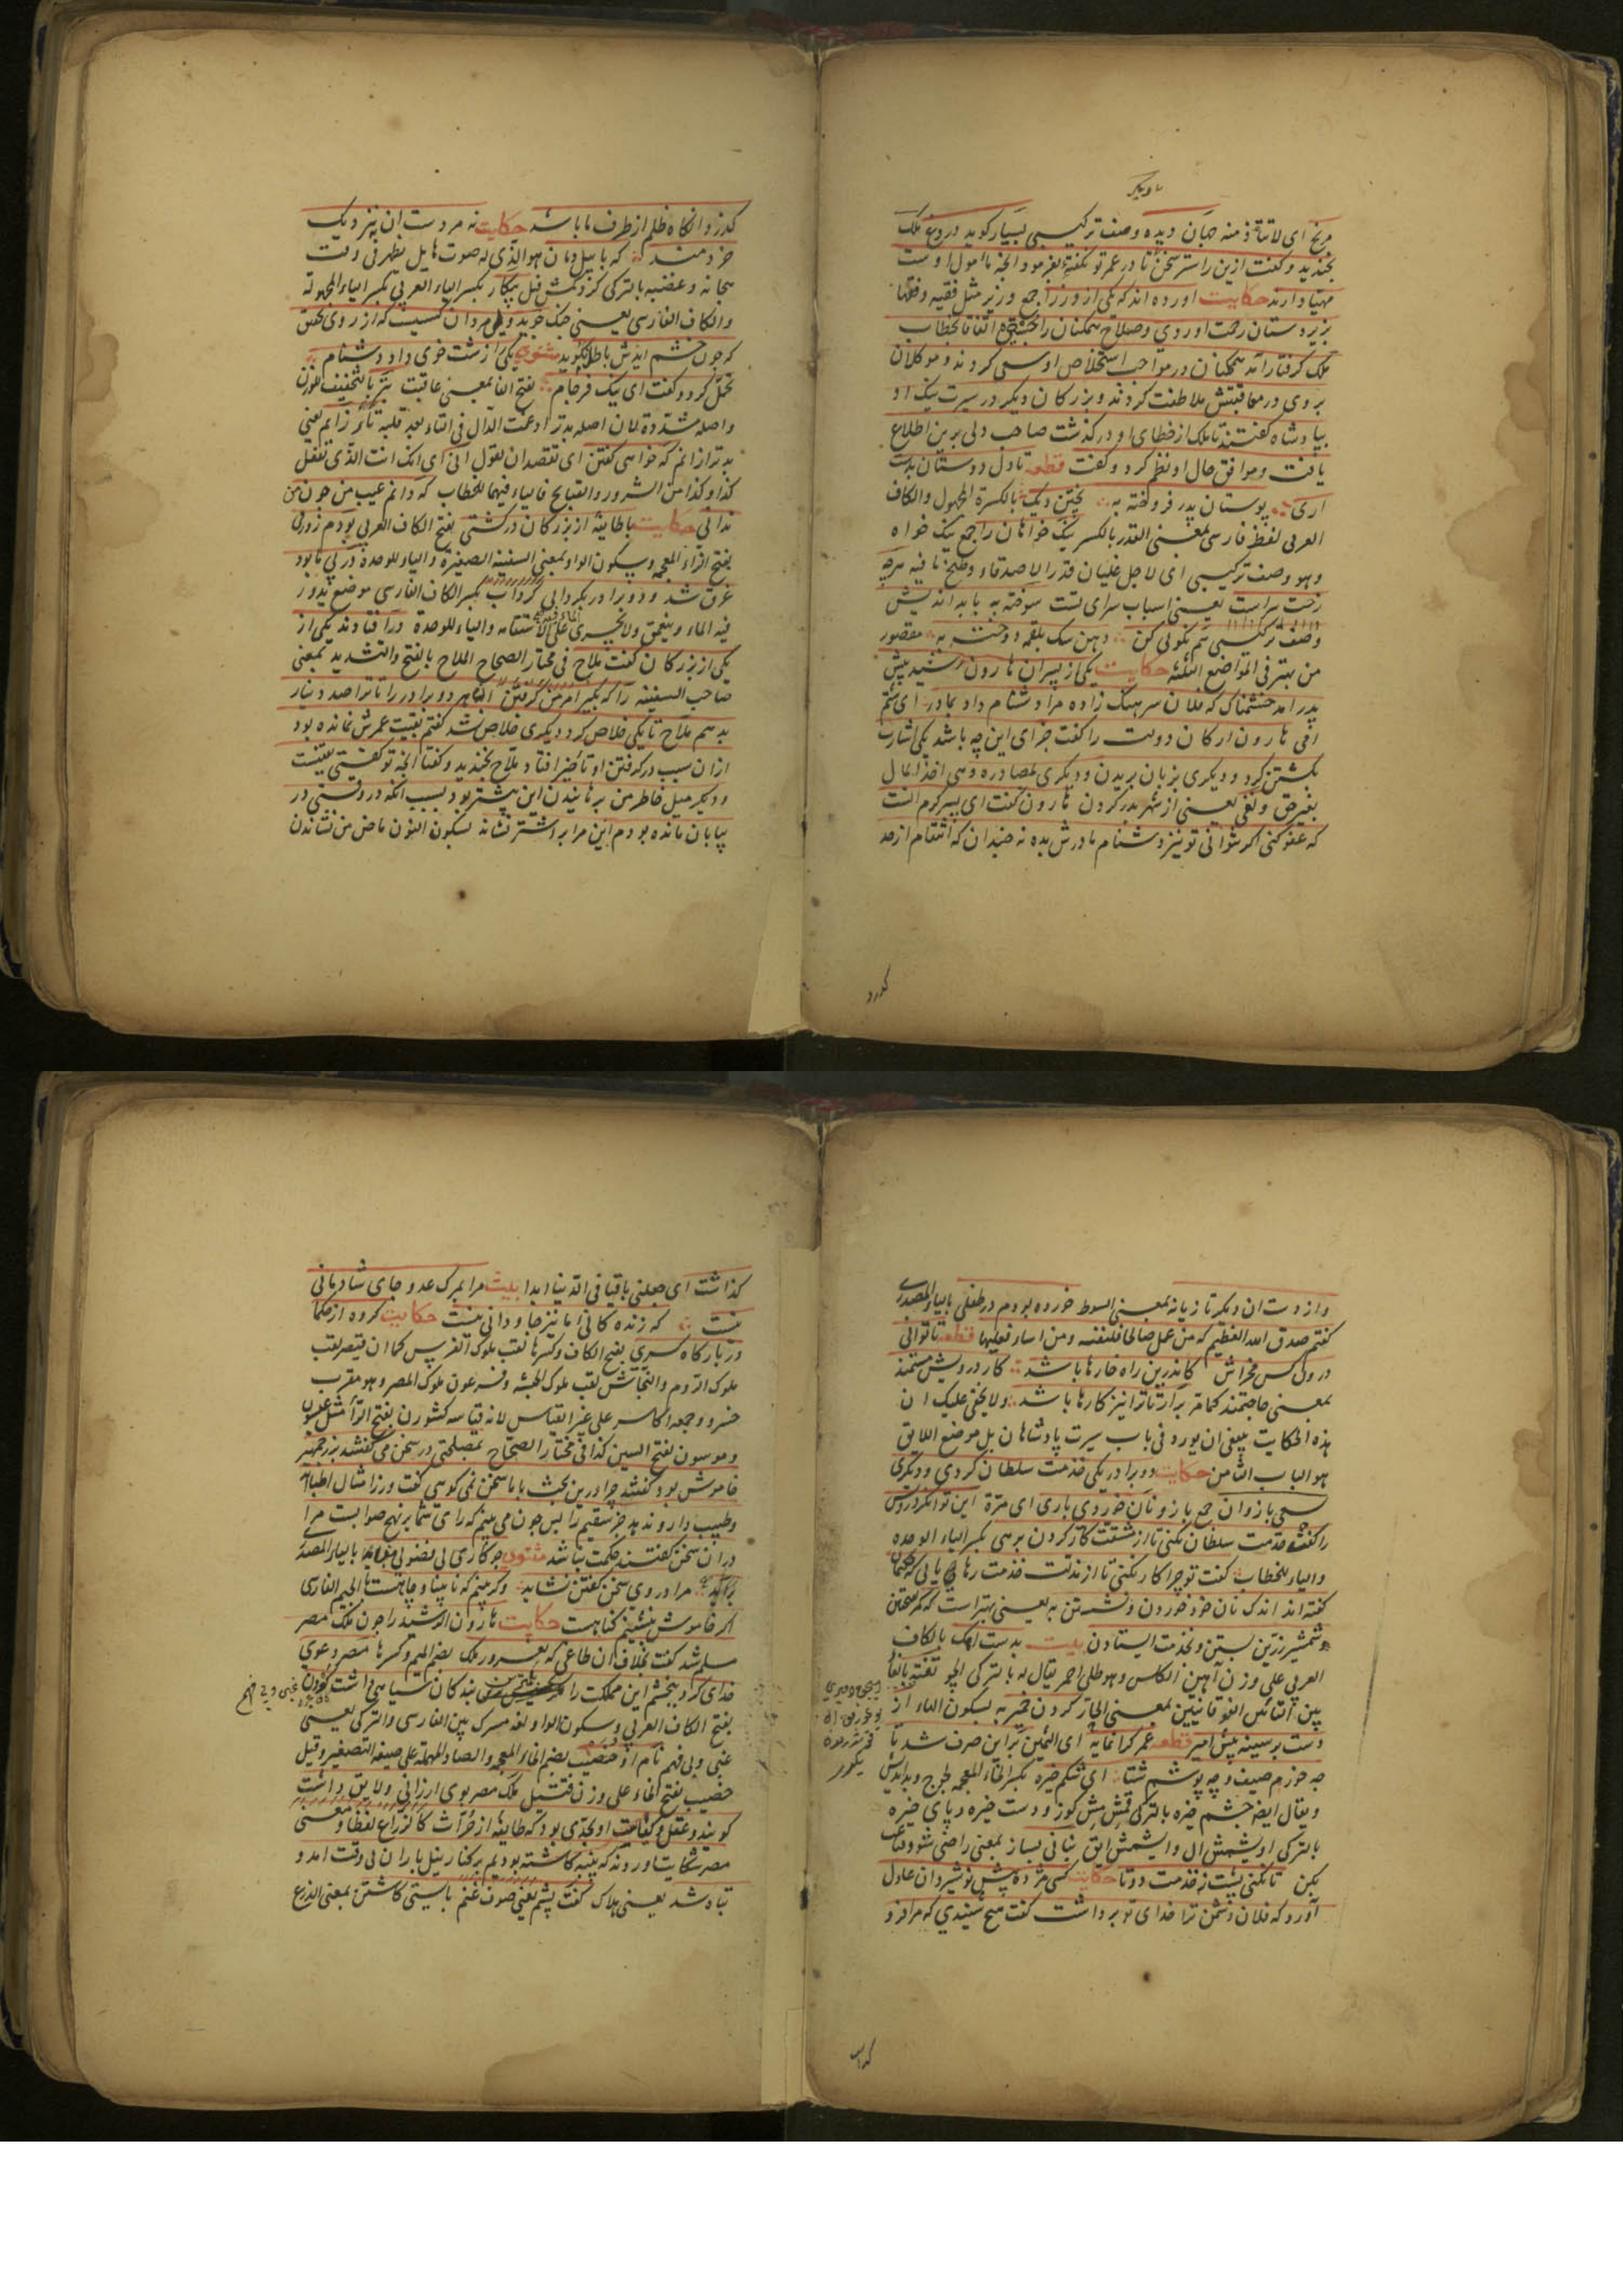 مرنج ای لا تتأذ منه جهان دیده وصف ترکیبی بسیار کوید دروغ ملک
بخندید و کفت ازین راستر سخن تا در عمر تو نکفتهٔ بفرمود تا آنچه مأمول اوست
مهیا دارند حکایت اورده اند که یکی از وزرا جمع وزیر مثل فقیه وفقها
بزیر دستان رحمت اوردی وصلاح همکنان را بجستی اتفاقا بخطاب
ملک کرفتار آمد همکنان در مواجب استخلاص او سعی کردند و موکلان
بروی در معاقبتش ملاطفت کردند و بزرکان دیکر در سیرت نیک او
بپادشاه کفتند تا ملک از خطای او در کذشت صاحب دلی برین اطلاع
یافت وموافق حال او نظم کرد و کفت قطعه تا دل دوستان بدست
اری پوستان پدر فروخته به پختن دیک بالکسرة المجهول والکاف
العربی لفظ فارسی بمعنی القدر بالکسر نیک خواهان را جمع نیک خواه
وهو وصف ترکیبی ای لاجل غلیان قدر الاصدقاء وطبخ ما فیه هرچه
رخت سراست یعنی اسباب سرای تست سوخته به با بد اندیش
وصف ترکیبی هم نکویی کن دهن سک بلقمه دوخته به مقصور
من بهتر فی المواضع الثلثة حکایت یکی از پسران هارون رشید پیش
پدر امد خشمناک که فلان سرهنک زاده مرا دشنام داد بمادر ای شتم
امی هارون ارکان دولت را کفت جزای این چه باشد یکی اشارت
بکشتن کرد و دیکری بزبان بریدن و دیکری بمصادره وهی اخذ المال
بغیر حق ونفی یعنی از شهر بدر کردن هارون کفت ای پسر کرم انست
که عفو کنی اکر نتوانی تو نیز دشنام مادرش بده نه چندان که انتقام از حد
کذرد
کذرد وانکاه ظلم از طرف ما باشد حکایت نه مردست ان بنزدیک
خردمند که با پیل دمان هو الذی له صوت هایل یظهر فی وقت
هیجانه وغضبه بالترکی کزکمش فیل پیکار بکسر الباء العربی بکسر الیاء المجهولة
والکاف الفارسی یعنی جنک جوید ولی مرد ان کسیست که از روی تحقیق
که چون خشم ایدش باطل نکوید مثنوی یکی را زشت خوی داد دشنام
تحمل کرد و کفت ای نیک فرجام بفتح الفا بمعنی عاقبت بتر بالتخفیف للوزن
واصله مشددة لان اصله بدتر ادغمت الدال فی التاء بعد قلبه تاء زانم یعنی
بدتر از انم که خواهی کفتن ای تقصد ان تقول انی ای انک انت الذی تفعل
کذا وکذا من الشرور والقبایح فالیاء فیهما للخطاب که دانم عیب من چون من
ندانی حکایت با طایفهٔ از بزرکان در کشتی بفتح الکاف العربی بودم زورقی
بفتح الزاء المعجمة وسکون الواو بمعنی السفینة الصغیرة والیاء للوحدة در پی ما بود
غرق شد و دو برادر بکردابی کرداب بکسر الکاف الفارسی موضع یدور
فیه الماء ویتعمق ولا یجری علی الاستقامه والیاء للوحدة در افتادند یکی از
یکی از بزرکان کفت ملاح فی مختار الصحاح الملاح بالفتح والتشدید بمعنی
صاحب السفینة را که بکیر امر من کرفتن انها هر دو برادر را تا ترا صد دینار
بدهم ملاح تا یکی خلاص کرد دیکری خلاص شد کفتم بقیت عمرش نمانده بود
ازان سبب در کرفتن او تأخیر افتاد ملاح بخندید و کفت آنچه تو کفتی یقینست
ودیکر میل خاطر من برهانیدن این بیشتر بود بسبب آنکه در وقتی در
بیابان مانده بودم این مرا بر اشتر نشاند بسکون النون ماض من نشاندن
وازدست ان دیکر تازیانه بمعنی السوط خورده بودم در طفلی بالیاء المصدری
کفتم صدق الله العظیم که من عمل صالحا فلنفسه ومن اساء فعلیها قطعه تا توانی
درون کس مخراش کاندرین راه خارها باشد کار درویش مستمند
بمعنی حاجتمند کما مر برار که ترا نیز کارها باشد ولا یخفی علیک ان
هذه الحکایت ینبغی ان یورد فی باب سیرت پادشاهان بل موضع اللایق
هو الباب الثامن حکایت دو برادر یکی خدمت سلطان کردی و دیکری
بسعی بازوان جمع بازو نان خوردی باری ای مرة این توانکر درویش
را کفت خدمت سلطان نکنی تا از مشقت کار کردن برهی بکسر الیاء الوحده
والیاء للخطاب کفت تو چرا کار نکنی تا از مذلت خدمت رهایی یابی که حکما
کفته اند اندک نان خود خوردن ونشستن به یعنی بهتر است که کمر بستن
وشمشیر زرین بستن وبخدمت ایستادن بیت بدست آهک بالکاف
العربی علی وزن آهن الکلس وهو طلی احمر یقال له بالترکی کچ تفته بالفا
بین التائین الفوقانیتین بمعنی الحار کردن خمیر به بسکون الهاء از
دست بر سینه پیش امیر قطعه عمر کرانمایه ای الثمین برین صرف شد تا
چه خورم صیف و چه پوشم شتا ای شکم خیره بکسر الخاء المعجمه لجوج وبد اندیش
ویقال ایضه چشم خیره بالترکی قمشمش کوز و دست خیره و پای خیره
بالترکی اویشمش ال وایشمش ایق بنانی بساز بمعنی راضی شو وقناعت
بکن تا نکنی پشت بخدمت دوتا حکایت کسی مژده پیش نوشیروان عادل
آورد که فلان دشمن ترا خدای تو برداشت کفت هیچ شنیدی که مرا فرو
کذاشت
کذاشت ای جعلنی باقیا فی الدنیا ابدا بیت مرا بمرک عدو جای شادمانی
نیست که زنده کانی ما نیز جاودانی نیست حکایت کروه از حکما
در بارکاه کسری بفتح الکاف وکسرها لقب ملوک الفرس کما ان قیصر لقب
ملوک الروم والنجاشی لقب ملوک الحبشه وفرعون ملوک المصر وهو معرب
خسرو وجمعه اکاسر علی غیر القیاس لانه قیاسه کسرون بفتح الراء مثل عیسون
وموسون بفتح السین کذا فی مختار الصحاح بمصلحتی در سخن می کفتند بزرجمهر
خاموش بود کفتند چرا درین بحث با ما سخن نمی کویی کفت وزرا مثال اطبااند
وطبیب دارو ندهد جز سقیم را پس چون می بینم که رای شما بر نهج صوابست مرا
دران سخن کفتن حکمت نباشد مثنوی چو کاری بی فضولی بالیاء المصدر
برآید مرا در وی سخن کفتن نشاید وکر بینم که نابینا و چاهست بالجیم الفارسی
اکر خاموش بنشینم کناهست حکایت هارون الرشید را چون ملک مصر
مسلم شد کفت بخلاف ان طاغی که بغرور ملک بضم المیم وکسرها مصر دعوی
خدای کرد نبخشم این مملکت را مکر بخسیس ترین بندکان سیاهی داشت کودن
بفتح الکاف العربی وسکون الواو لغة مشترک بین الفارسی والترکی یعنی
غبی وبی فهم نام او خصیب بضم الخاء المعجمه والصاد المهملة علی صیغة التصغیر وقیل
خصیب بفتح الخاء علی وزن فعیل ملک مصر بوی ارزانی داشت
کویند عقل وکفایت او بحدی بود که طایفهٔ از حراث کالزراع لفظا ومعنی
مصر شکایت اوردند که پنبه کاشته بودیم بر کنار نیل باران بی وقت امد و
تباه شد یعنی هلاک کفت پشم یعنی صوف غنم بایستی کاشتن بمعنی الزرع